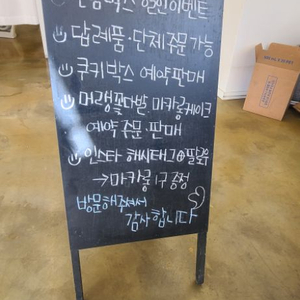 할인이벤트
답례품·단체 주문 가능
쿠키박스 예약판매
머랭꽃다발 마카롱케이크
예약 주문·판매
인스타 해시태그@팔로우
→마카롱 1구 증정
방문해주셔서
감사합니다